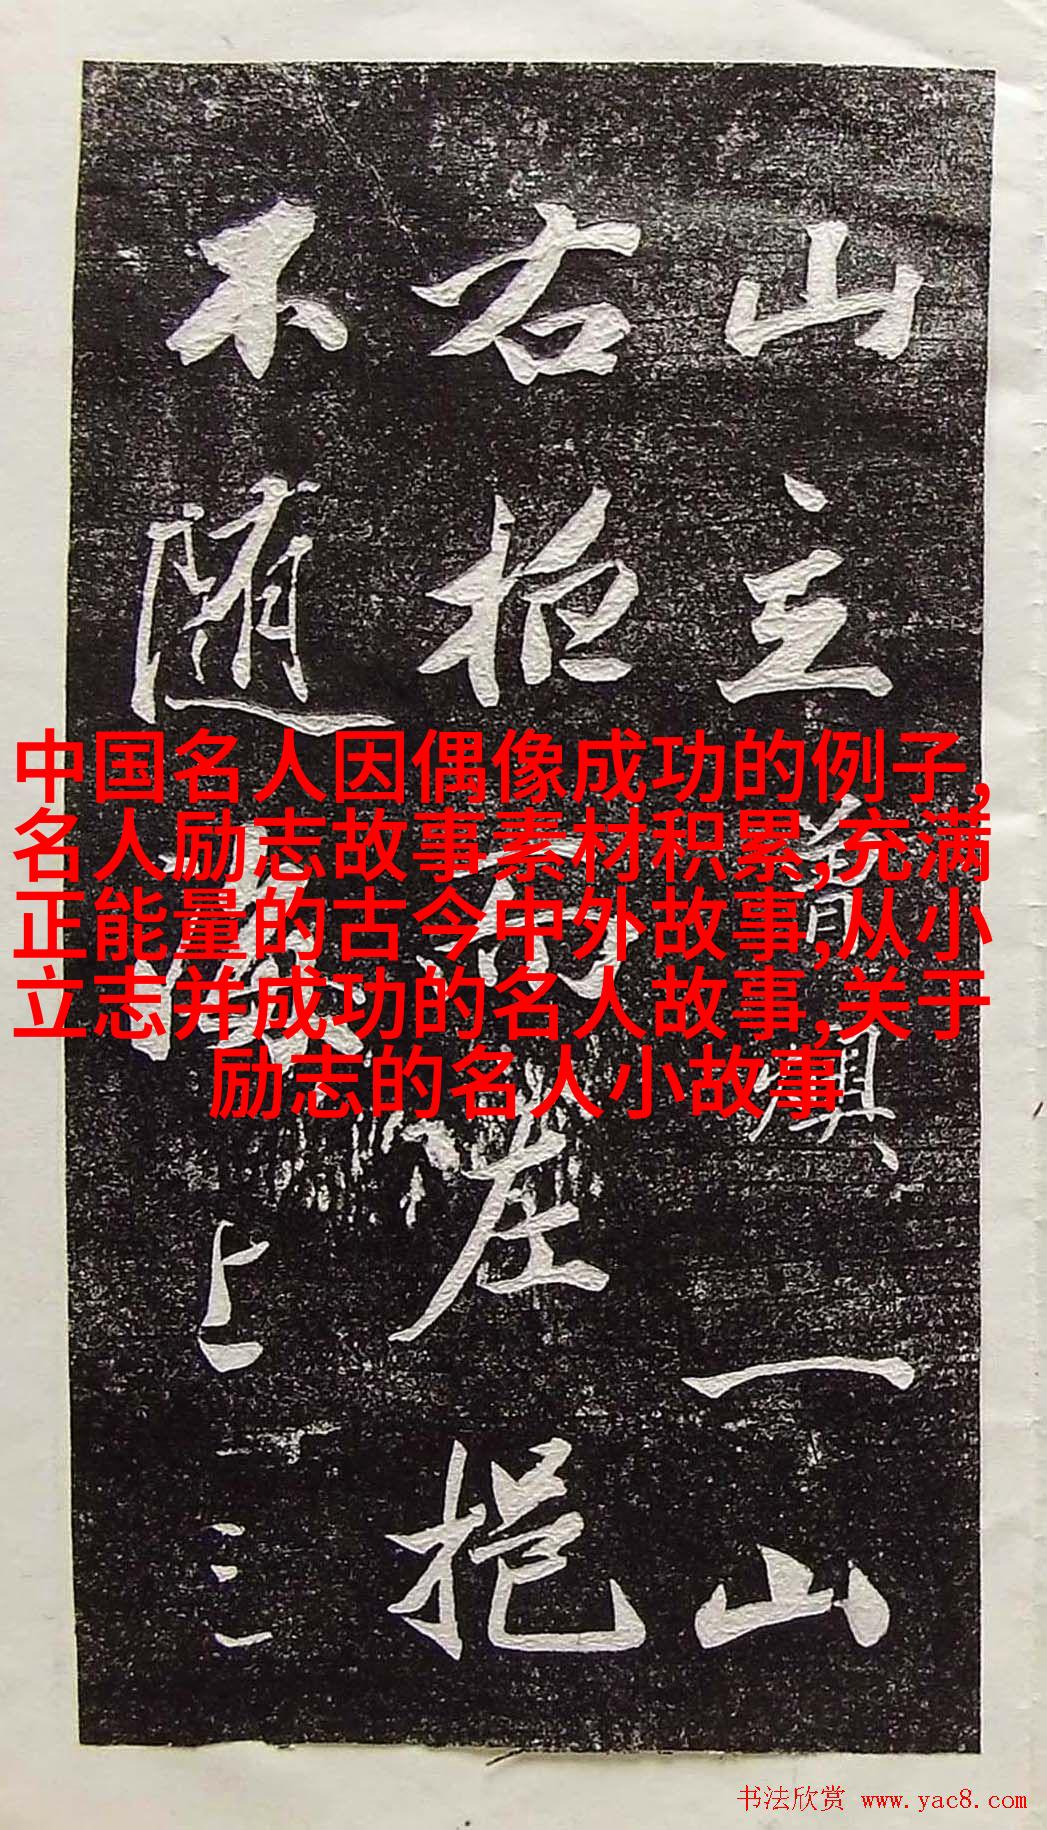 中国名人因偶像成功的例子,
名人励志故事素材积累,充满
正能量的古今中外故事,从小
立志并成功的名人故事,关于
励志的名人小故事
山主一山
右而左挹
不随上
书法欣赏 www.yac8.com